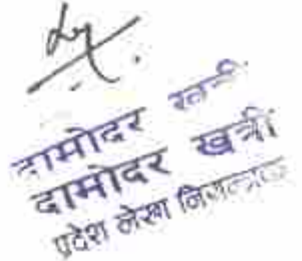 दामोदर खत्री
दामोदर खत्री
प्रदेश लेखा नियन्त्रक